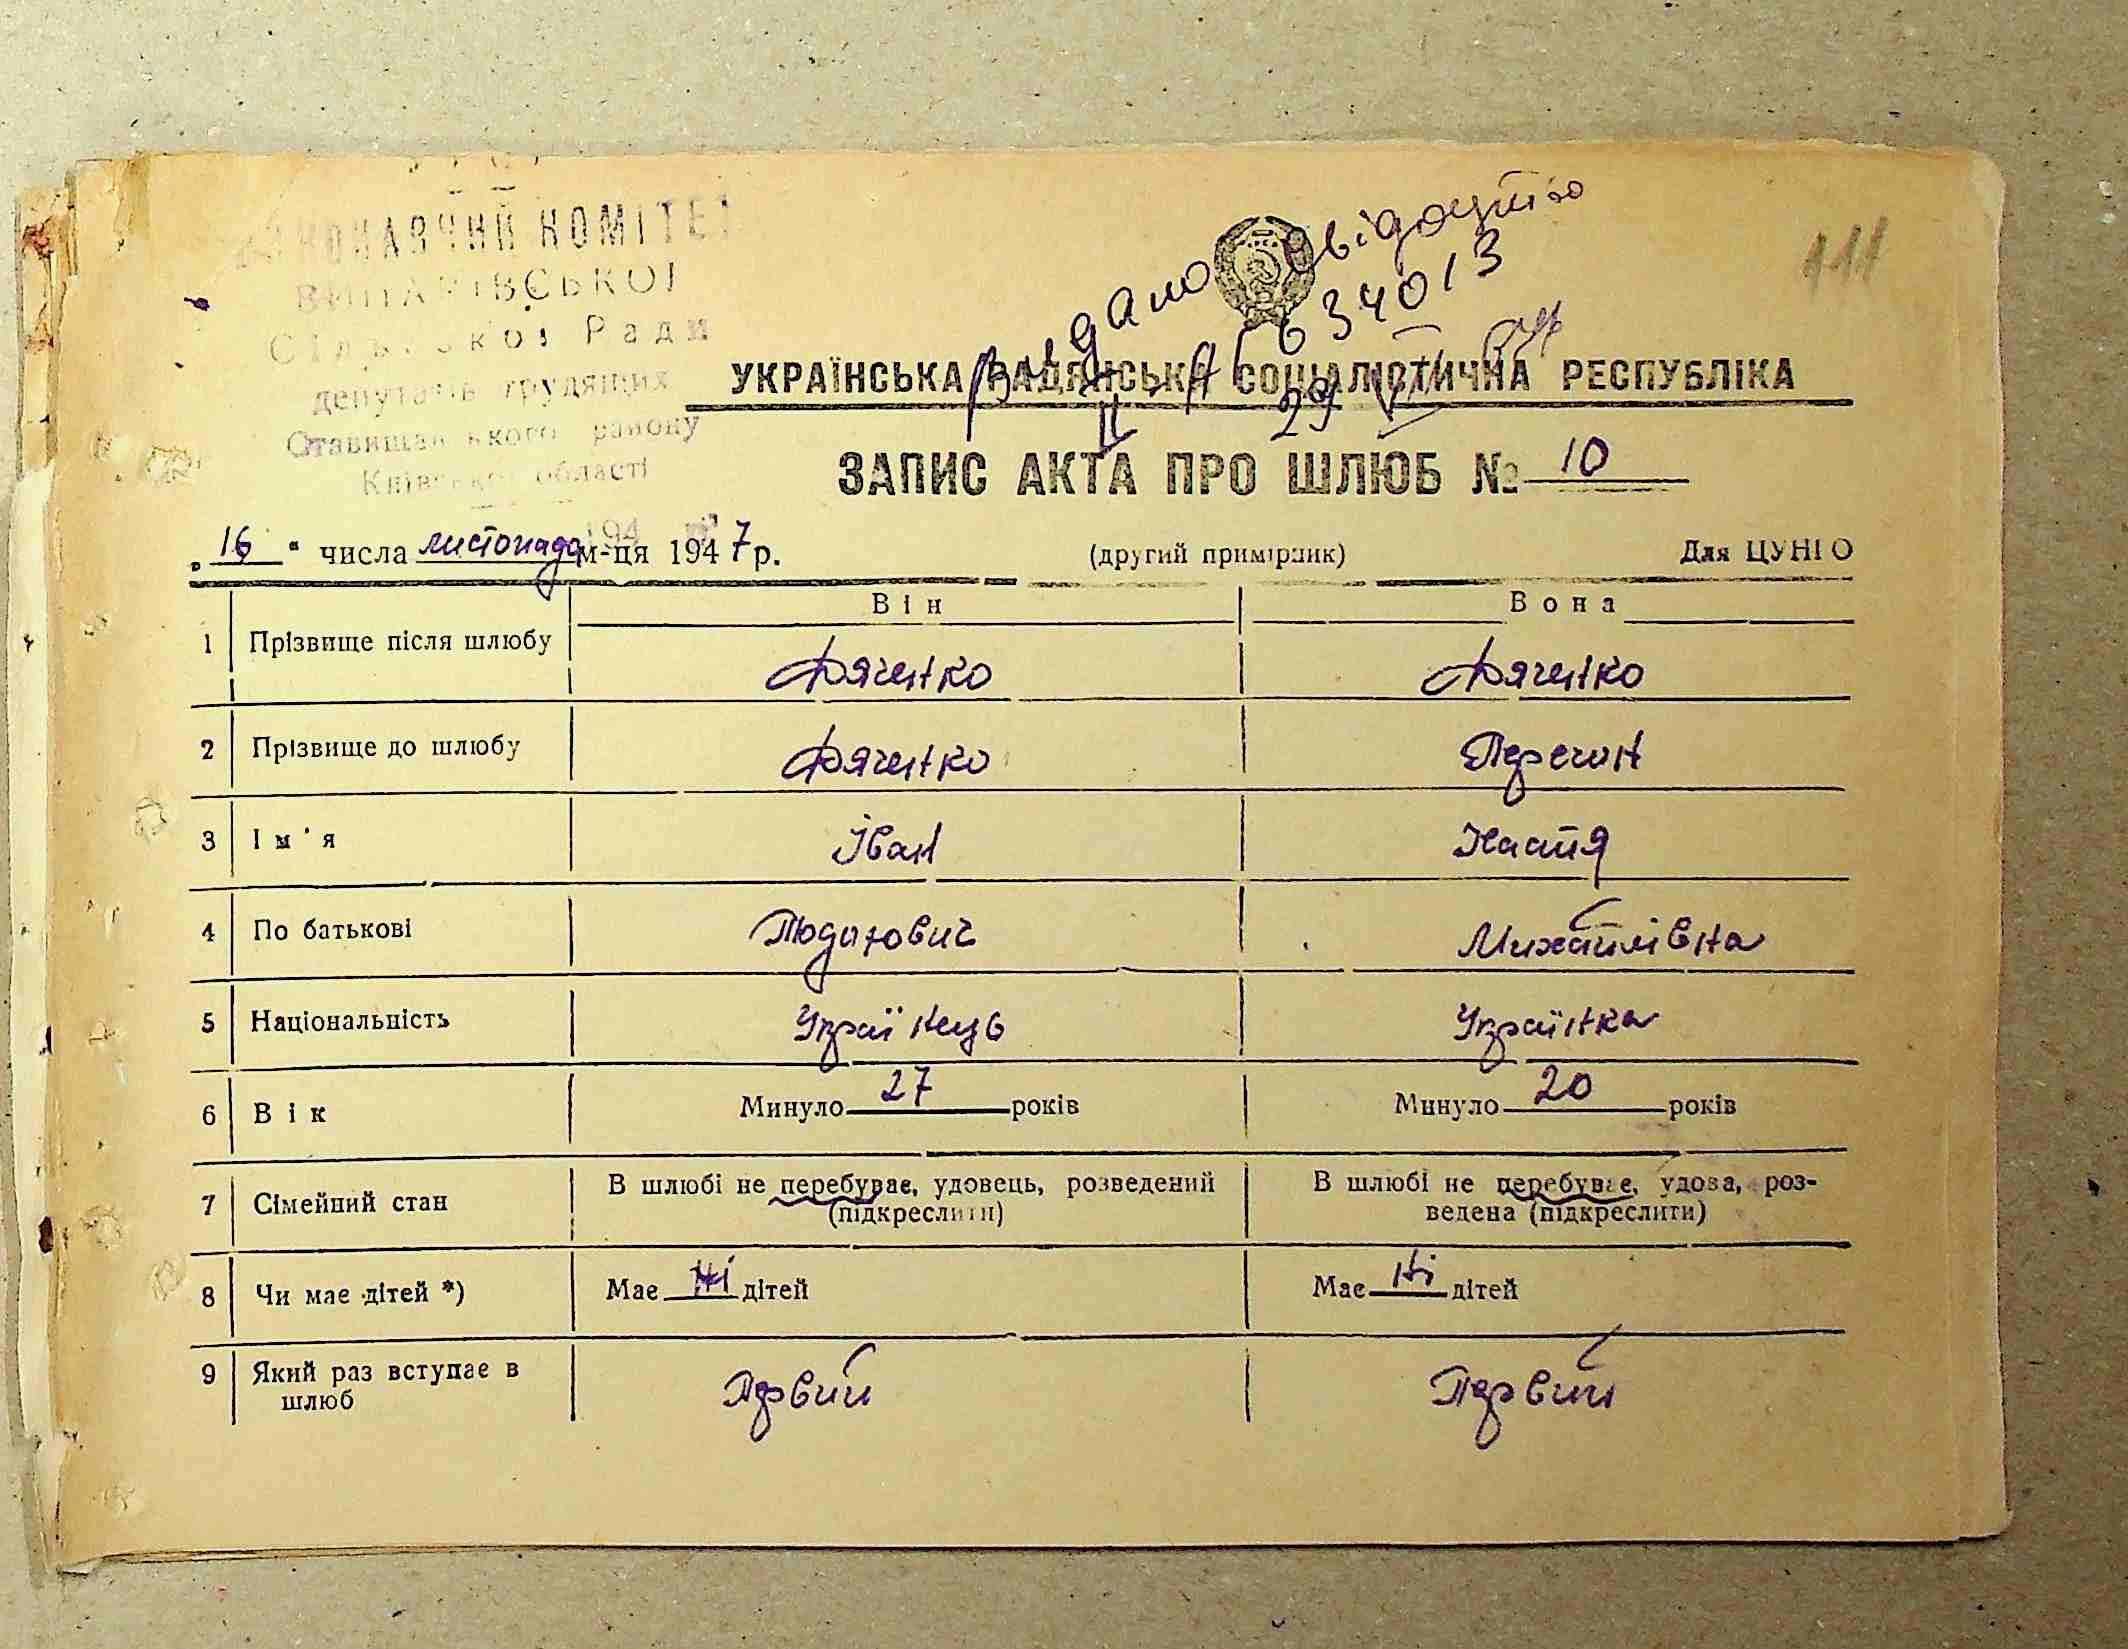 ВИКОНАВЧИЙ КОМІТЕТ
Сільської Ради
депутатів трудящих
Ставищанського району
Київської області
Видано свідоцтво
634013
111
УКРАЇНСЬКА РАДЯНСЬКА СОЦІАЛІСТИЧНА РЕСПУБЛІКА
ЗАПИС АКТА ПРО ШЛЮБ № 10
„16" числа листопада м-ця 1947 р. (другий примірник) Для ЦУНГО
Він Вона
1 Прізвище після шлюбу Дяченко Дяченко
2 Прізвище до шлюбу Дяченко
3 Ім'я Іван Настя
4 По батькові Михайлівна
5 Національність Українець Українка
6 Вік Минуло 27 років Минуло 20 років
7 Сімейний стан В шлюбі не перебуває, удовець, розведений (підкреслити) В шлюбі не перебуває, удова, розведена (підкреслити)
8 Чи має дітей *) Має Ні дітей Має Ні дітей
9 Який раз вступає в шлюб Первий Первий